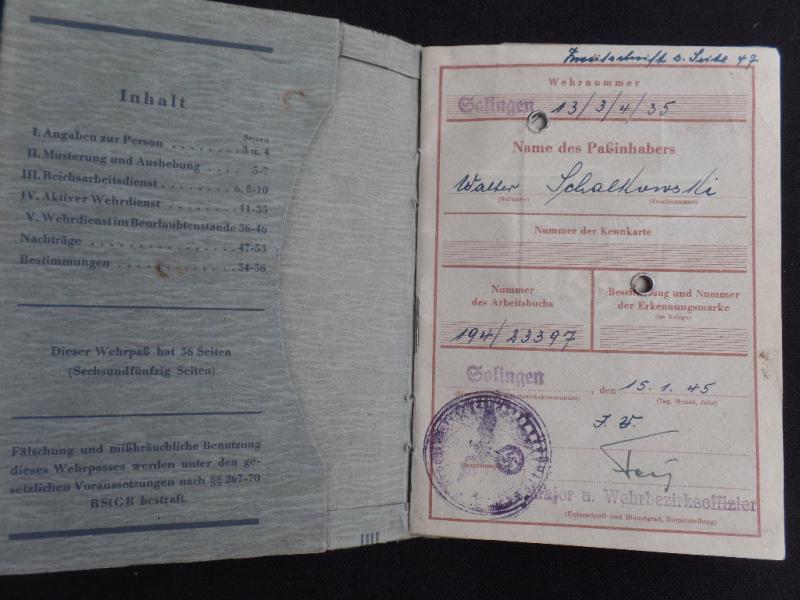 Inhalt
Seiten
I. Angaben zur Person . . . . . . . 3 u. 4
II. Musterung und Aushebung . . . . 5-7
III. Reichsarbeitsdienst . . . . . . 6, 8-10
IV. Aktiver Wehrdienst . . . . . . 11-35
V. Wehrdienst im Beurlaubtenstande 36-46
Nachträge . . . . . . . . . . 47-53
Bestimmungen . . . . . . . . 54-56
Dieser Wehrpaß hat 56 Seiten
(Sechsundfünfzig Seiten)
Fälschung und mißbräuchliche Benutzung
dieses Wehrpasses werden unter den ge-
setzlichen Voraussetzungen nach §§ 267-70
RStGB bestraft.
Zweitschrift s. Seite 47
Wehrnummer
Solingen 13/3/4/35
Name des Paßinhabers
Walter Schalkowski
(Rufname) (Familienname)
Nummer der Kennkarte
Nummer
des Arbeitsbuchs
194/23397
Beschriftung und Nummer
der Erkennungsmarke
(im Kriege)
Solingen, den 15.1.45
(Tag, Monat, Jahr)
I. V.
Major u. Wehrbezirksoffizier
(Unterschrift und Dienstgrad, Dienststellung)